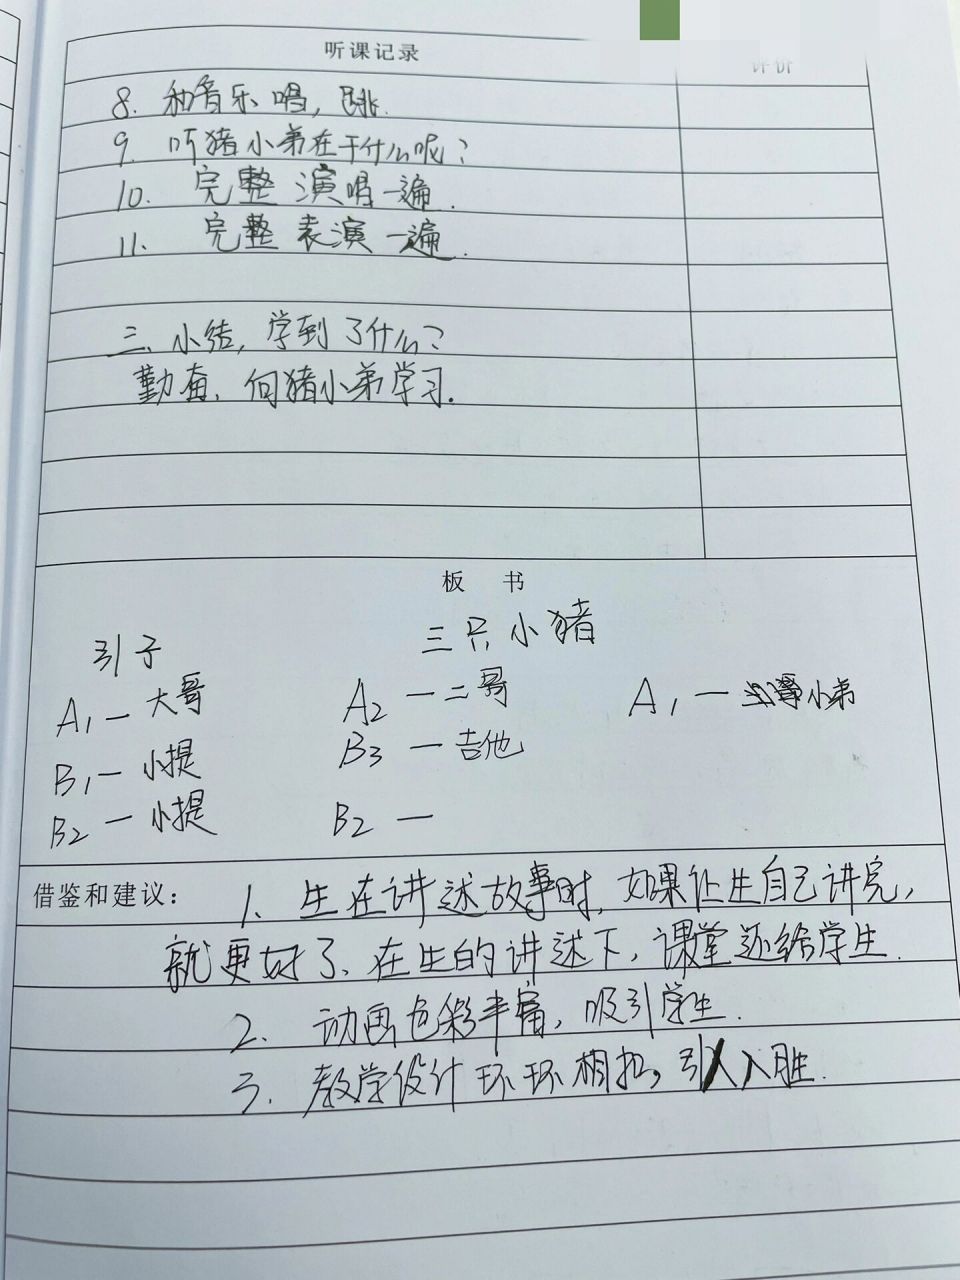 听课记录
评价
8. 和音乐唱，跳.
9. 听猪小弟在干什么呢？
10. 完整演唱一遍.
11. 完整表演一遍.
三、小结，学到了什么？
勤奋，向猪小弟学习.
板书
三只小猪
引子
A1 — 大哥 A2 — 二哥 A1 — 小弟
B1 — 小提 B3 — 吉他
B2 — 小提 B2 —
借鉴和建议： 1. 生在讲述故事时，如果让生自己讲完，
就更好了、在生的讲述下，课堂还给学生.
2. 动画色彩丰富，吸引学生.
3. 教学设计环环相扣，引人入胜.